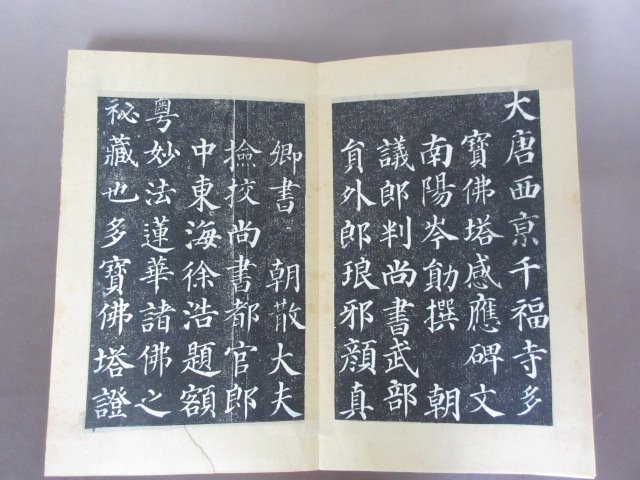 大唐西京千福寺多
寶佛塔感應碑文
南陽岑勛撰　朝
議郎判尚書武部
員外郎琅邪顏真
卿書　朝散大夫
撿挍尚書都官郎
中東海徐浩題額
粵妙法蓮華諸佛之
祕藏也多寶佛塔證